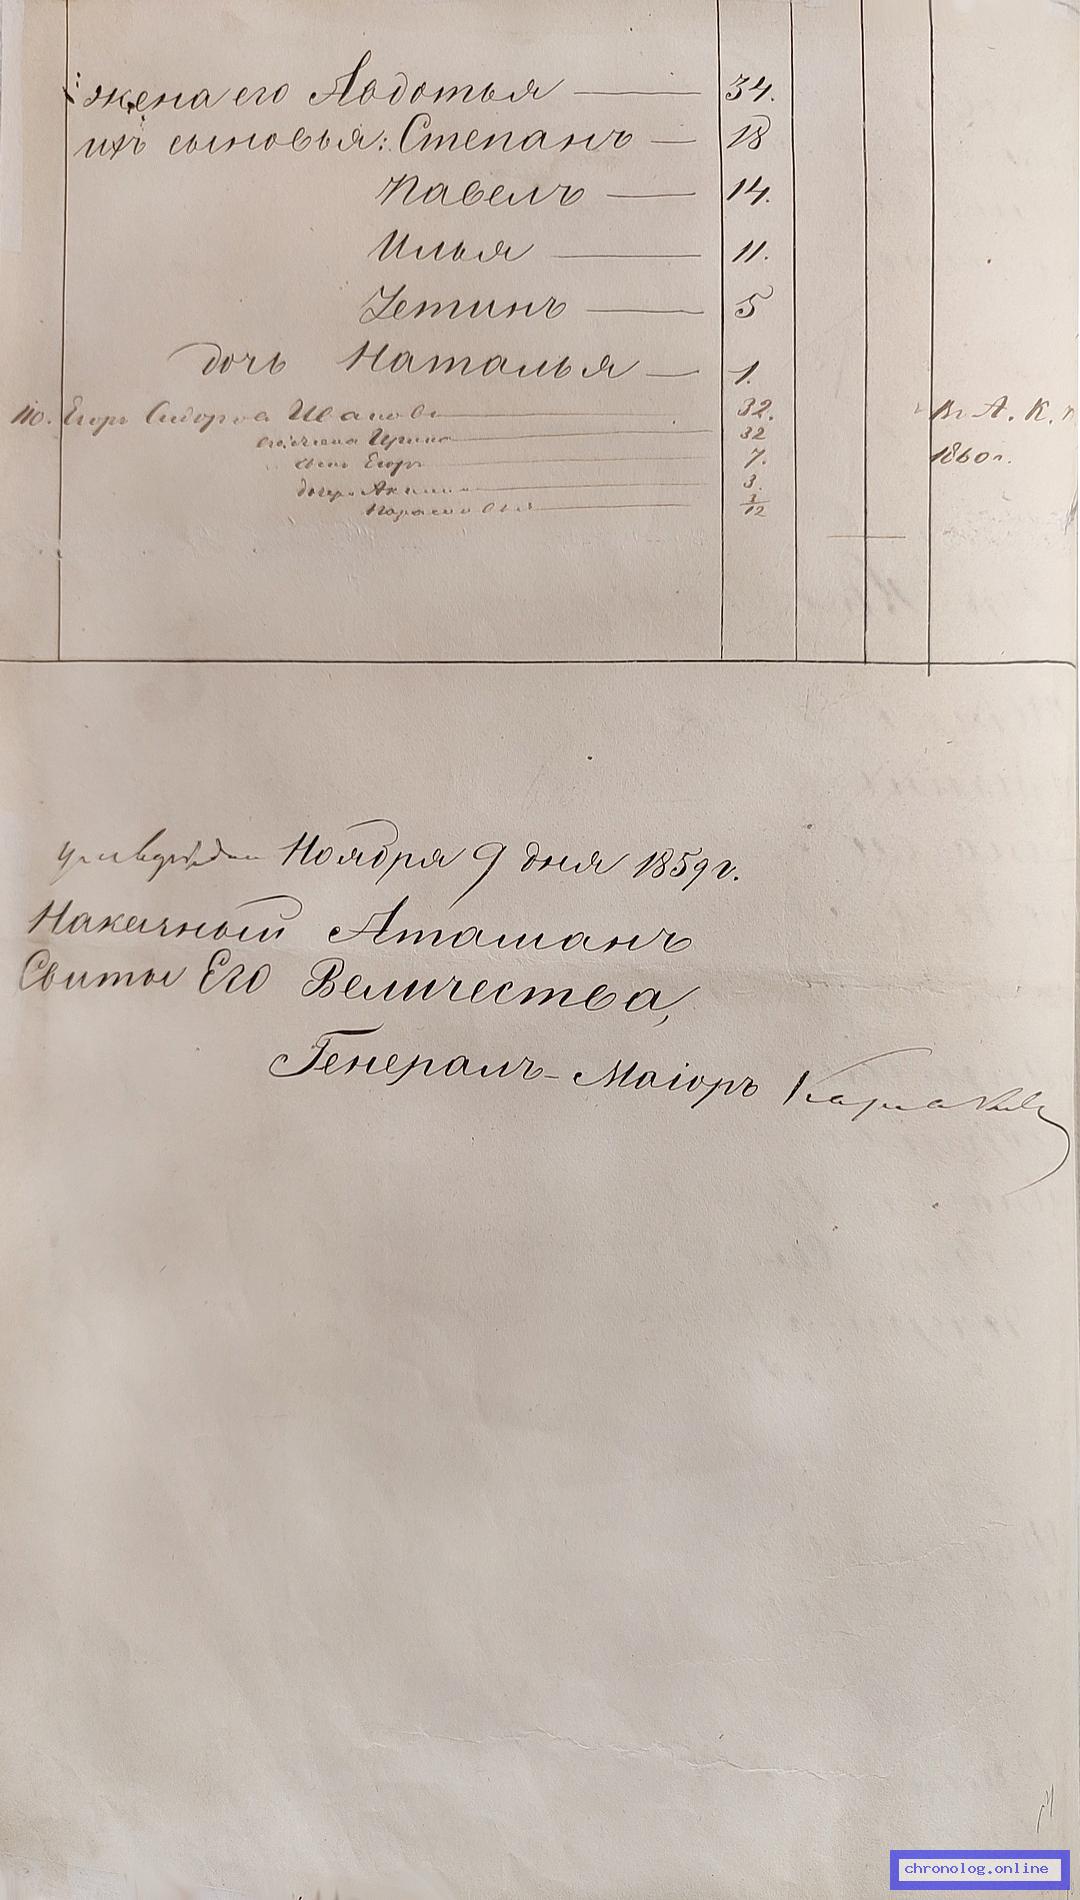 жена его Авдотья — 34.
ихъ сыновья: Степанъ — 18
Павелъ — 14.
Илья — 11.
Устинъ — 5
дочь Наталья — 1.
110. Егоръ Сидоровъ Ивановъ — 32. Въ А. К. В
его жена Ирина — 32
сынъ Егоръ — 7. 1860 г.
дочери Акилина — 3.
Парасковья — 3/12
утвержден Ноября 9 дня 1859 г.
Наказный Атаманъ
Свиты Его Величества,
Генералъ-Маіоръ
chronolog.online